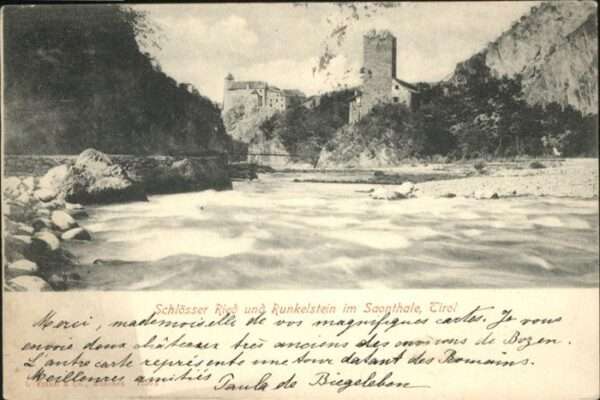 Schlösser Ried und Runkelstein im Saonthale, Tirol
Merci, mademoiselle de vos magnifiques cartes. Je vous
envoie deux châteaux très anciens des environs de Bozen.
L'autre carte représente une tour datant des Romains.
Meilleures amitiés Paula de Biegeleben